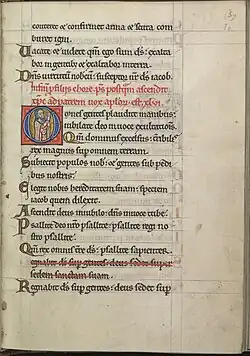 conteret et confringet arma et scuta com
buret igni.
Uacate et uidete qm̄ ego sum d̄s: exalta
bor in gentib; et exaltabor in terra.
Dn̄s uirtutū nobcū: susceptor nr̄ d̄s iacob.
In finē p̄ filiis chore. p̄s postqm̄ ascendit
xp̄c ad patrem uox aplor̄. est. xlvi.
Omnes gentes plaudite manibus:
iubilate deo in uoce exultationis.
Qm̄ dominus excelsus: t̄ribilis
rex magnus sup̄ omnem terram.
Subiecit populos nob: et gentes sub pedi
bus nostris.
Elegit nobis hereditatem suam: speciem
iacob quem dilexit.
Ascendit deus in iubilo: dn̄s in uoce tubę.
Psallite deo nr̄o psallite: psallite regi no
stro psallite.
Qm̄ rex omnis tr̄e d̄s: psallite sapienter.
Regnabit d̄s sup̄ gentes: deus sedet super
sedem sanctam suam.
Regnabit d̄s sup̄ gentes: deus sedet sup̄